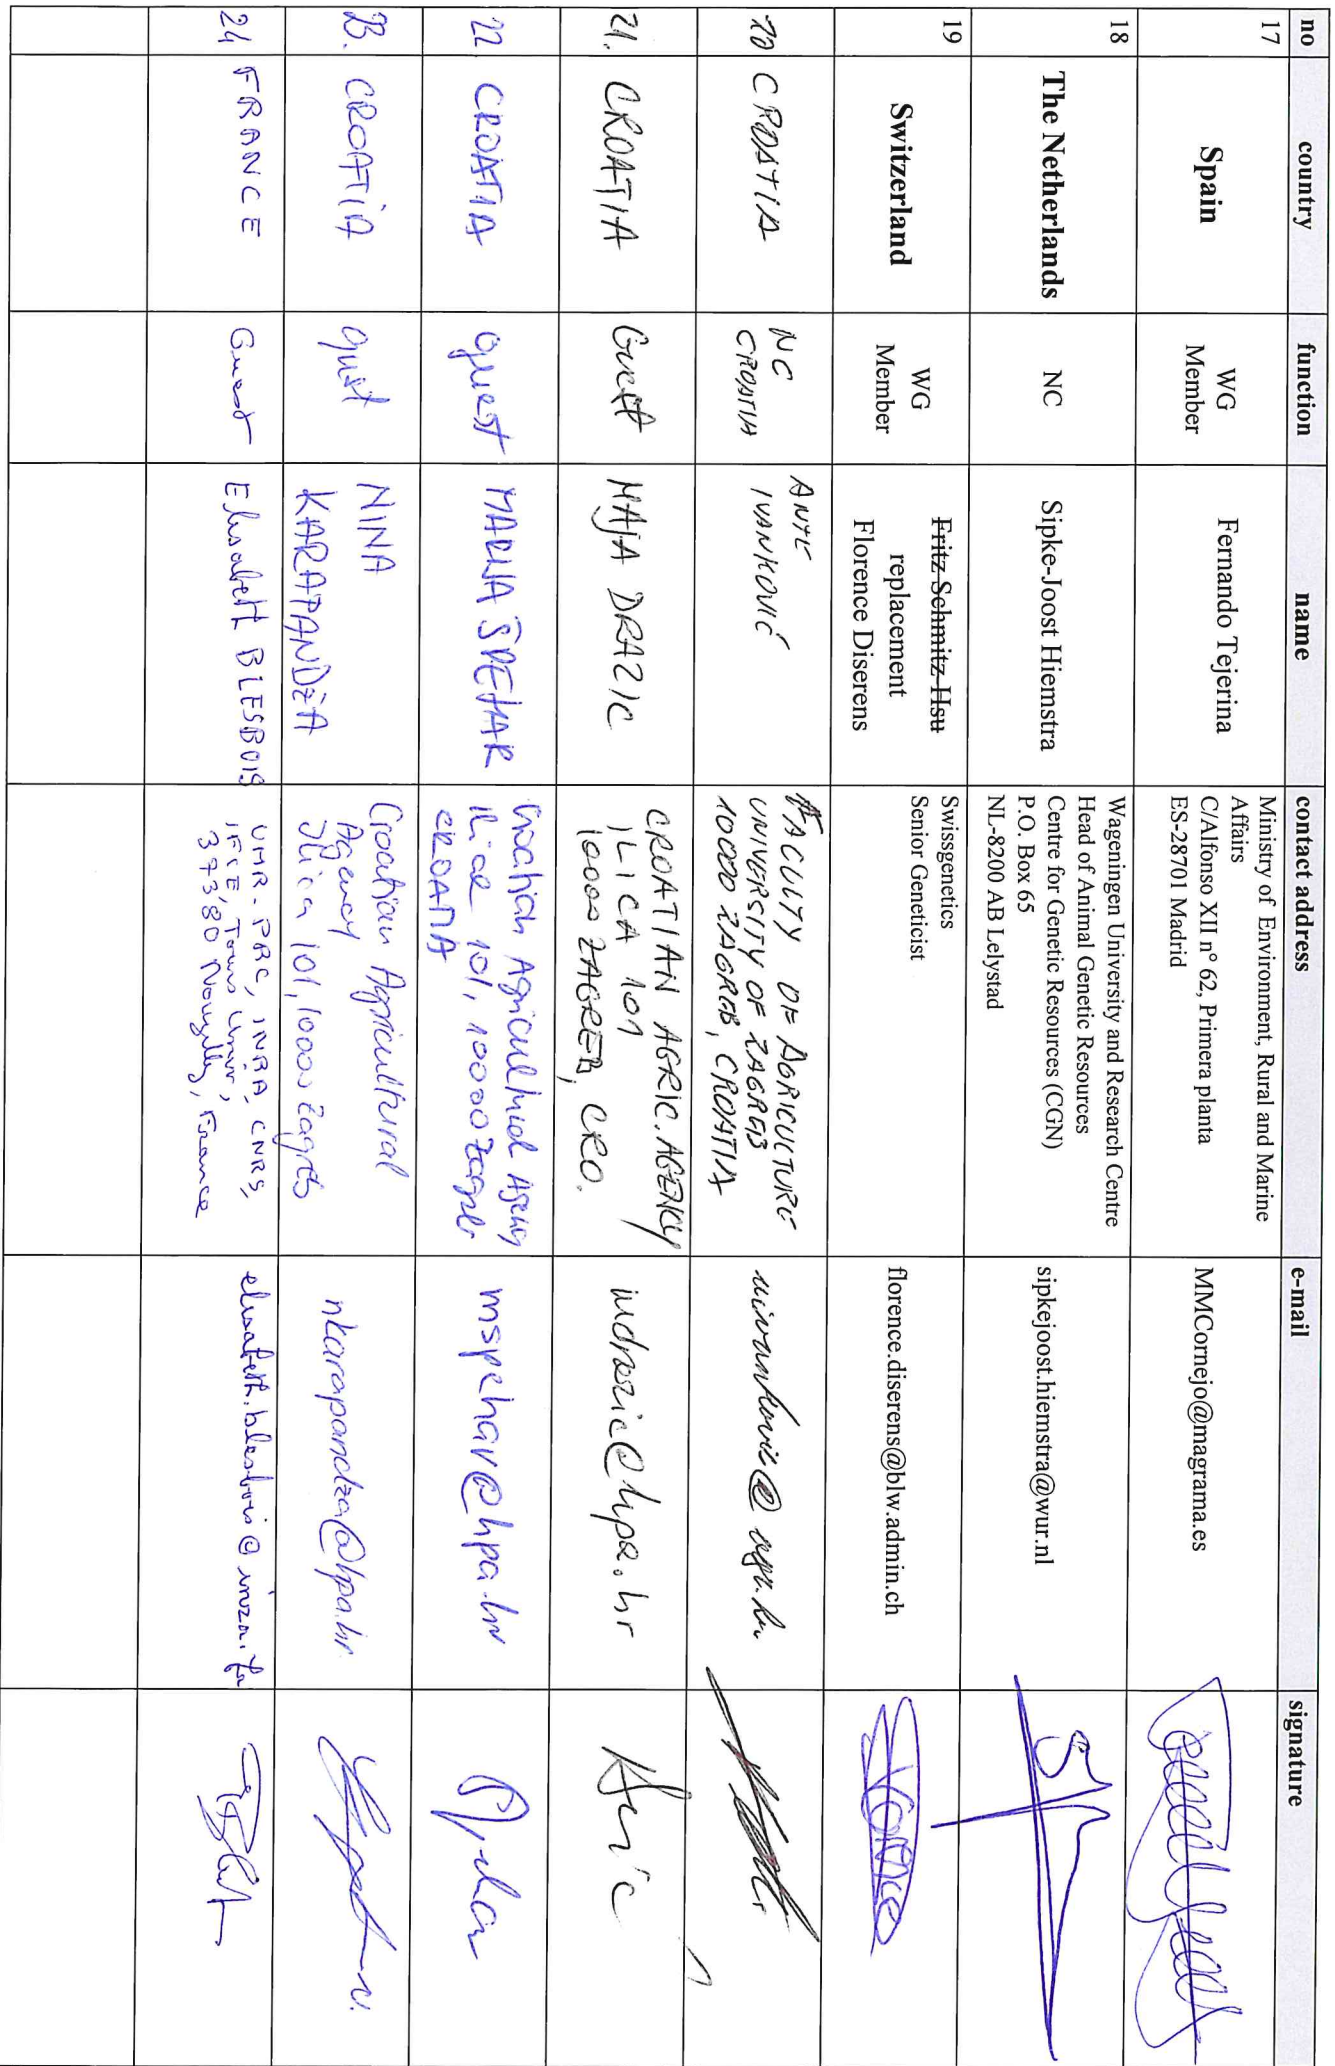 no country function name contact address e-mail signature
17 Spain WG Member Fernando Tejerina Ministry of Environment, Rural and Marine
Affairs
C/Alfonso XII nº 62, Primera planta
ES-28701 Madrid
MMCornejo@magrama.es
18 The Netherlands NC Sipke-Joost Hiemstra Wageningen University and Research Centre
Head of Animal Genetic Resources
Centre for Genetic Resources (CGN)
P.O. Box 65
NL-8200 AB Lelystad
sipkejoost.hiemstra@wur.nl
19 Switzerland WG Member
Fritz Schmitz-Hsu
replacement
Florence Diserens
Swissgenetics
Senior Geneticist
florence.diserens@blw.admin.ch
20 CROATIA NC
CROATIA
ANTE
IVANKOVIĆ
FACULTY OF AGRICULTURE
UNIVERSITY OF ZAGREB
10000 ZAGREB, CROATIA
21. CROATIA Guest MAJA DRAZIC
CROATIAN AGRIC. AGENCY
ILICA 101
10000 ZAGREB, CRO.
mdrazic@hpa.hr
22 CROATIA guest MARIJA ŠPEHAR
Croatian Agricultural Agency
Ilica 101, 10000 Zagreb
CROATIA
mspehar@hpa.hr
23. CROATIA guest NINA
KARAPANDŽA
Croatian Agricultural
Agency
Ilica 101, 10000 Zagreb
nkarapandza@hpa.hr
24 FRANCE Guest Elisabeth BLESBOIS
UMR-PRC, INRA, CNRS,
IFCE, Tours Univ,
37380 Nouzilly, France
elisabeth.blesbois@inra.fr